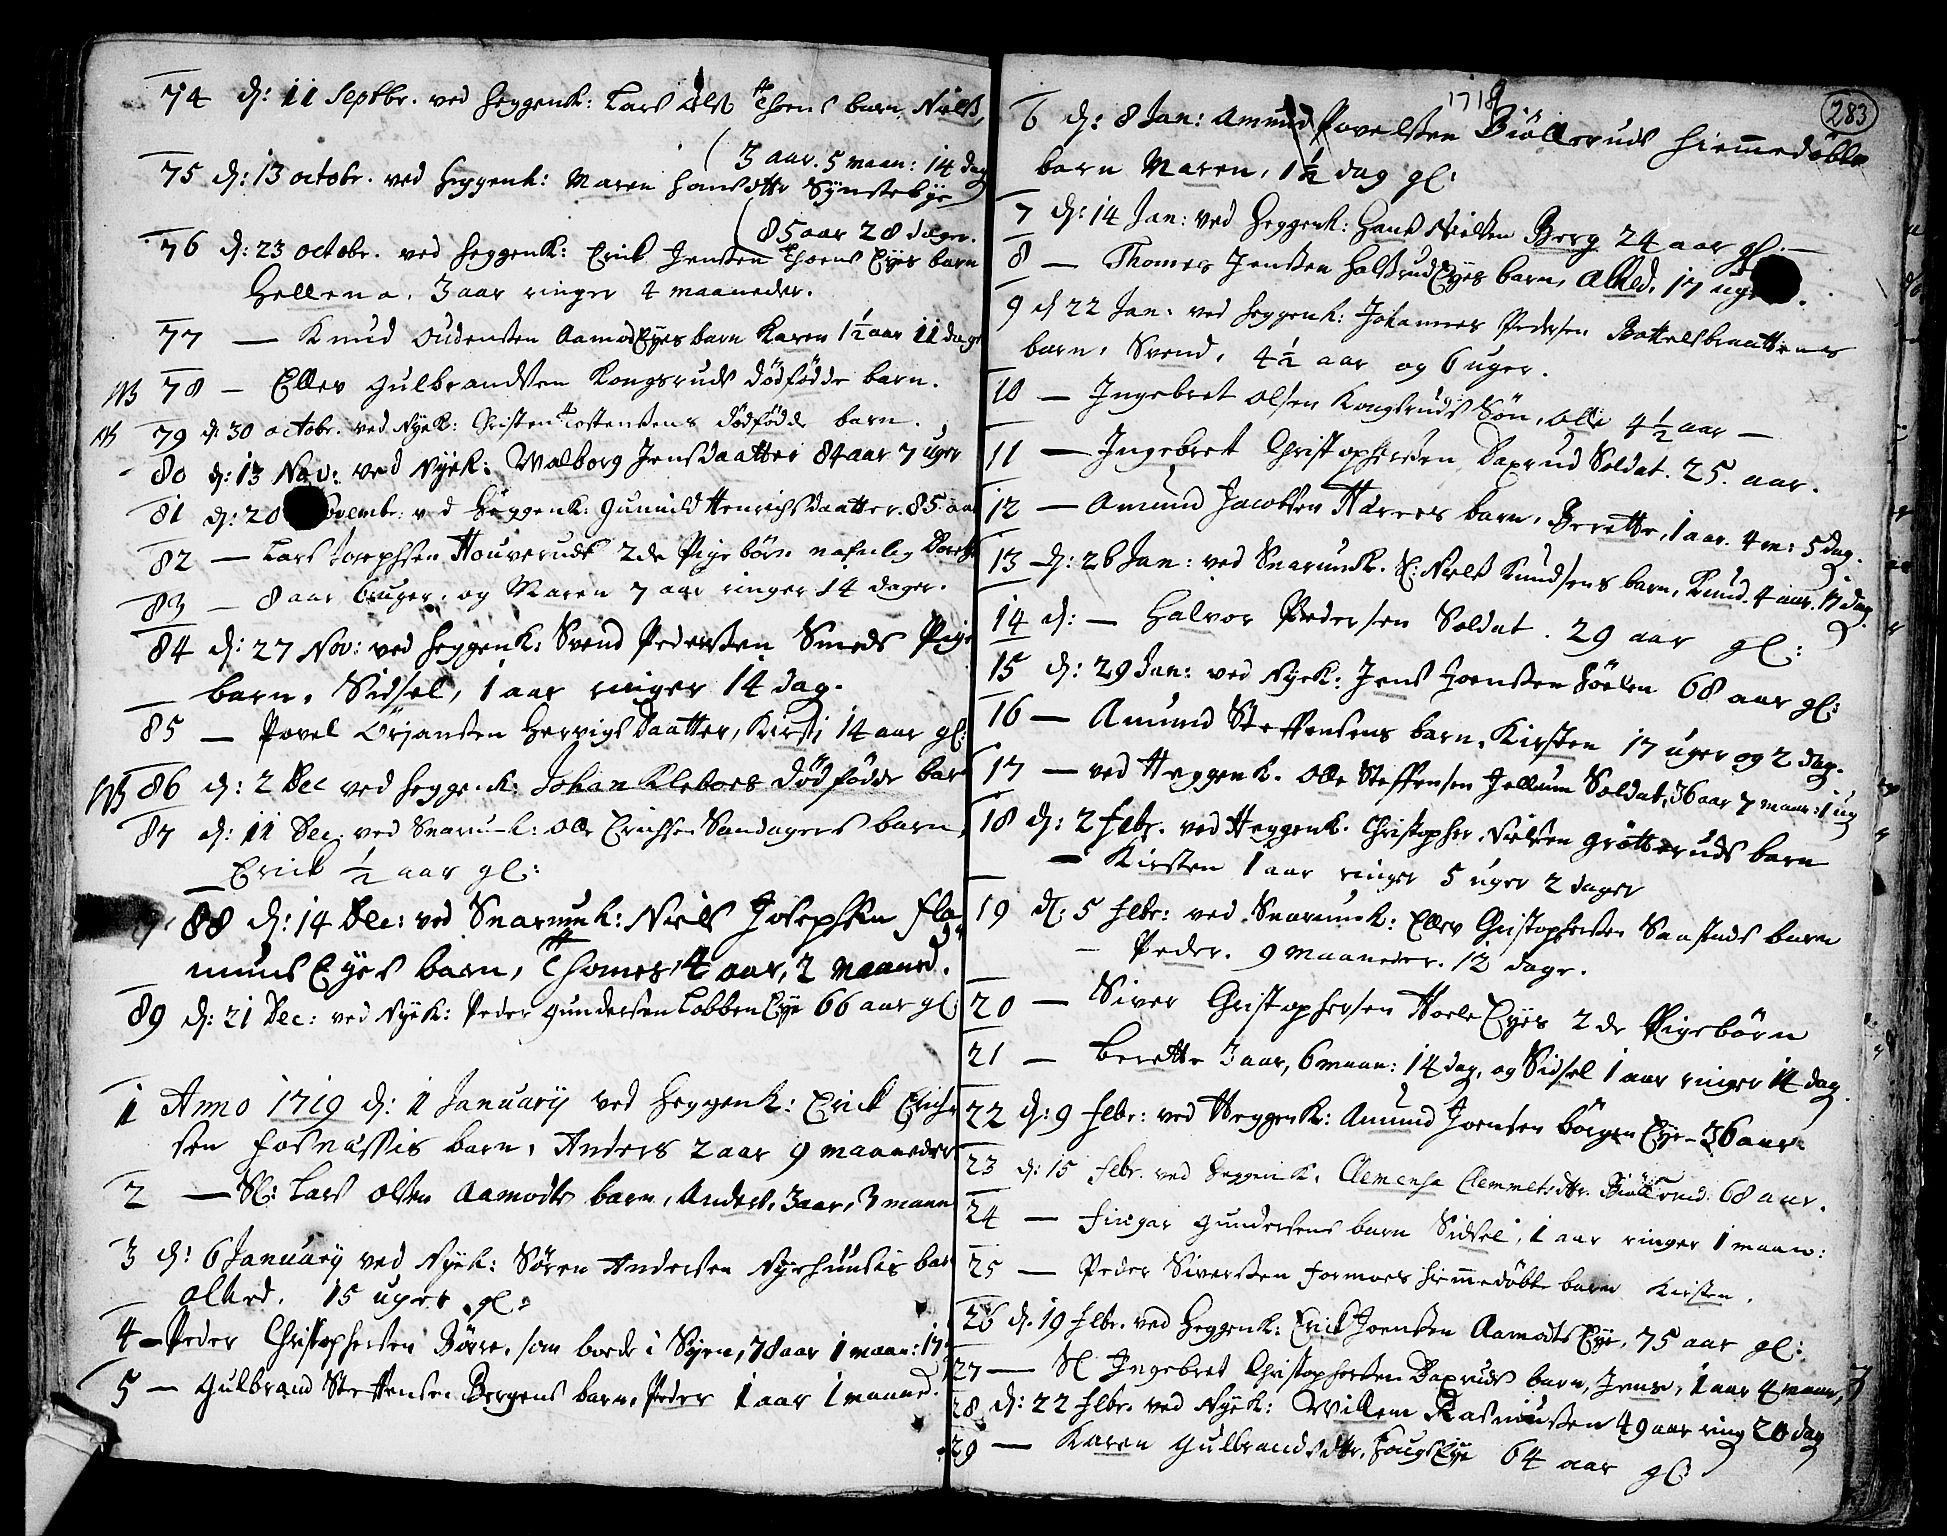 74 d: 11 Septbr. ved Heggenk: Lars Ols Thoens barn, Niels,
( 3 aar. 5 maan: 14 dag
75 d: 13 octobr. ved Heggenk: Maren Hansdttr Synstebye
( 85 aar 28 dage.
76 d: 23 octobr. ved Heggenk: Erick Jenssen Thoens Eyes barn
Hellena. 3 aar ringer 4 maaneder.
77 — Knud Oudensen Aamod Eyes barn Karen 1½ aar 11 dag
NB 78 — Ellev Gulbrandsen Kongsruds dödfödde barn.
NB 79 d: 30 octobr. ved Nyek: Christen Tostensens dödfödde barn.
80 d: 13 Nov: ved Nyek: Walborg Jensdaatter 84 aar 7 uger
81 d: 20 ovembr: ved Heggenk: Gunnild Henrichsdaatter. 85. aar
82 — Lars Josephsen Houveruds 2de Pige börn nafnlig
83 — 8 aar 6 uger. og Maren 7 aar ringer 14 dager.
84 d: 27 Nov: ved Heggenk: Svend Pederssen Smeds Pige
barn. Sidsel, 1 aar ringer 14 dag.
85 — Povel Örjansen Hervigs Daatter, Kirsti 14 aar gl:
NB 86 d: 2 Dec ved Heggenk: Johan Kleboes dödfödde bar
87 d: 11 Dec. ved Snarumk: Olle Erichsen Sandagers barn,
Erick ½ aar gl:
88 d: 14 Dec: ved Snarumk: Niels Josephsen Fla
muns Eyes barn, Thomes, 4 aar, 2 maaned.
89 d: 21 Dec: ved Nyek: Peder Gundersen Lobben Eye 66 aar gl:
1 Anno 1719 d: 1 Januarij ved Heggenk: Erick Erich
sen Fosnessis barn, Anders 2 aar 9 maaneder
2 — Sl: Lars Olsen Aamodts barn, Anders, 3 aar, 3 maan
3 d: 6 Januarij ved Nyek: Sören Andersen Nyehuusis bar
Olhed. 15 uger gl:
4 — Peder Christophersen Börre, som boede i Syen, 78 aar 1 maan: 17
5 — Gulbrand Steffensen Bergens barn, Peder 1 aar 1 maaned.
283
1718
6 d: 8 Jan: Amund Povelssen Biöllerud hiemmedöbte
barn Maren, 1½ dag gl:
7 d: 14 Jan: ved Heggenk: Hans Nielsen Berg 24 aar gl. —
8 — Thomes Jenssen Halsrud Eyes barn, Alhld, 17 uge
9 d 22 Jan: ved Heggenk: Johannes Pedersen Bottolsbraattenes
barn, Svend, 4½ aar og 6 uger.
10 — Ingebret Olsen Kongsruds Sön, Olle 4½ aar —
11 — Ingebrett Christophersen Daxrud Soldat. 25. aar.
12 — Amund Jacobsen Hærees barn, Berette, 1 aar. 4 m: 5 dag.
13 d: 26 Jan: ved Snarumk. Sl: Niels Knudsens barn, Knud. 4 aar. 17 dag.
14 d: — Halvor Pedersen Soldat. 29 aar gl:
15 d: 29 Jan: ved Nyek: Jens Joenssen Föelen 68 aar gl:
16 — Amund Steffensens barn, Kirsten 17 uger og 2 dag.
17 — ved Heggenk. Olle Steffensen Jellum Soldat, 36 aar 7 maan: 1 ug
18 d: 2 Febr. ved Heggenk. Christopher Nielsen Grötteruds barn
— Kirsten 1 aar ringer 5 uger 2 dager
19 d: 5 Febr: ved Snarumk: Ellev Christophersen Saastads barn
— Peder. 9 maaneder. 12 dage.
20 — Siver Christophersen Hoele Eyes 2de Pigebörn
21 — Berette 3 aar, 6 maan: 14 dag, og Sidsel 1 aar ringer 14 dag.
22 d: 9 Febr: ved Heggenk: Amund Joensen Börgen Eye — 36 aar
23 d: 15 Febr. ved Heggenk. Clemensa Clemmetsdttr. Biöllerud. 68 aar.
24 — Fingar Gundersens barn Sidsel, 1 aar ringer 1 maan:
25 — Peder Siverssen Formoes hiemmedöbte barn Kirsten.
26 d. 19 Febr. ved Heggenk: Erick Joenssen Aamodts Eye, 75 aar gl:
27 — Sl Ingebret Christophersen Daxruds barn, Jens, 1 aar 4 maan,
28 d: 22 Febr. ved Nyek: Willem Rasmussen 49 aar ring 20 dag
29 — Karen Gulbrandsdttr. Fougs Eye 64 aar gl: